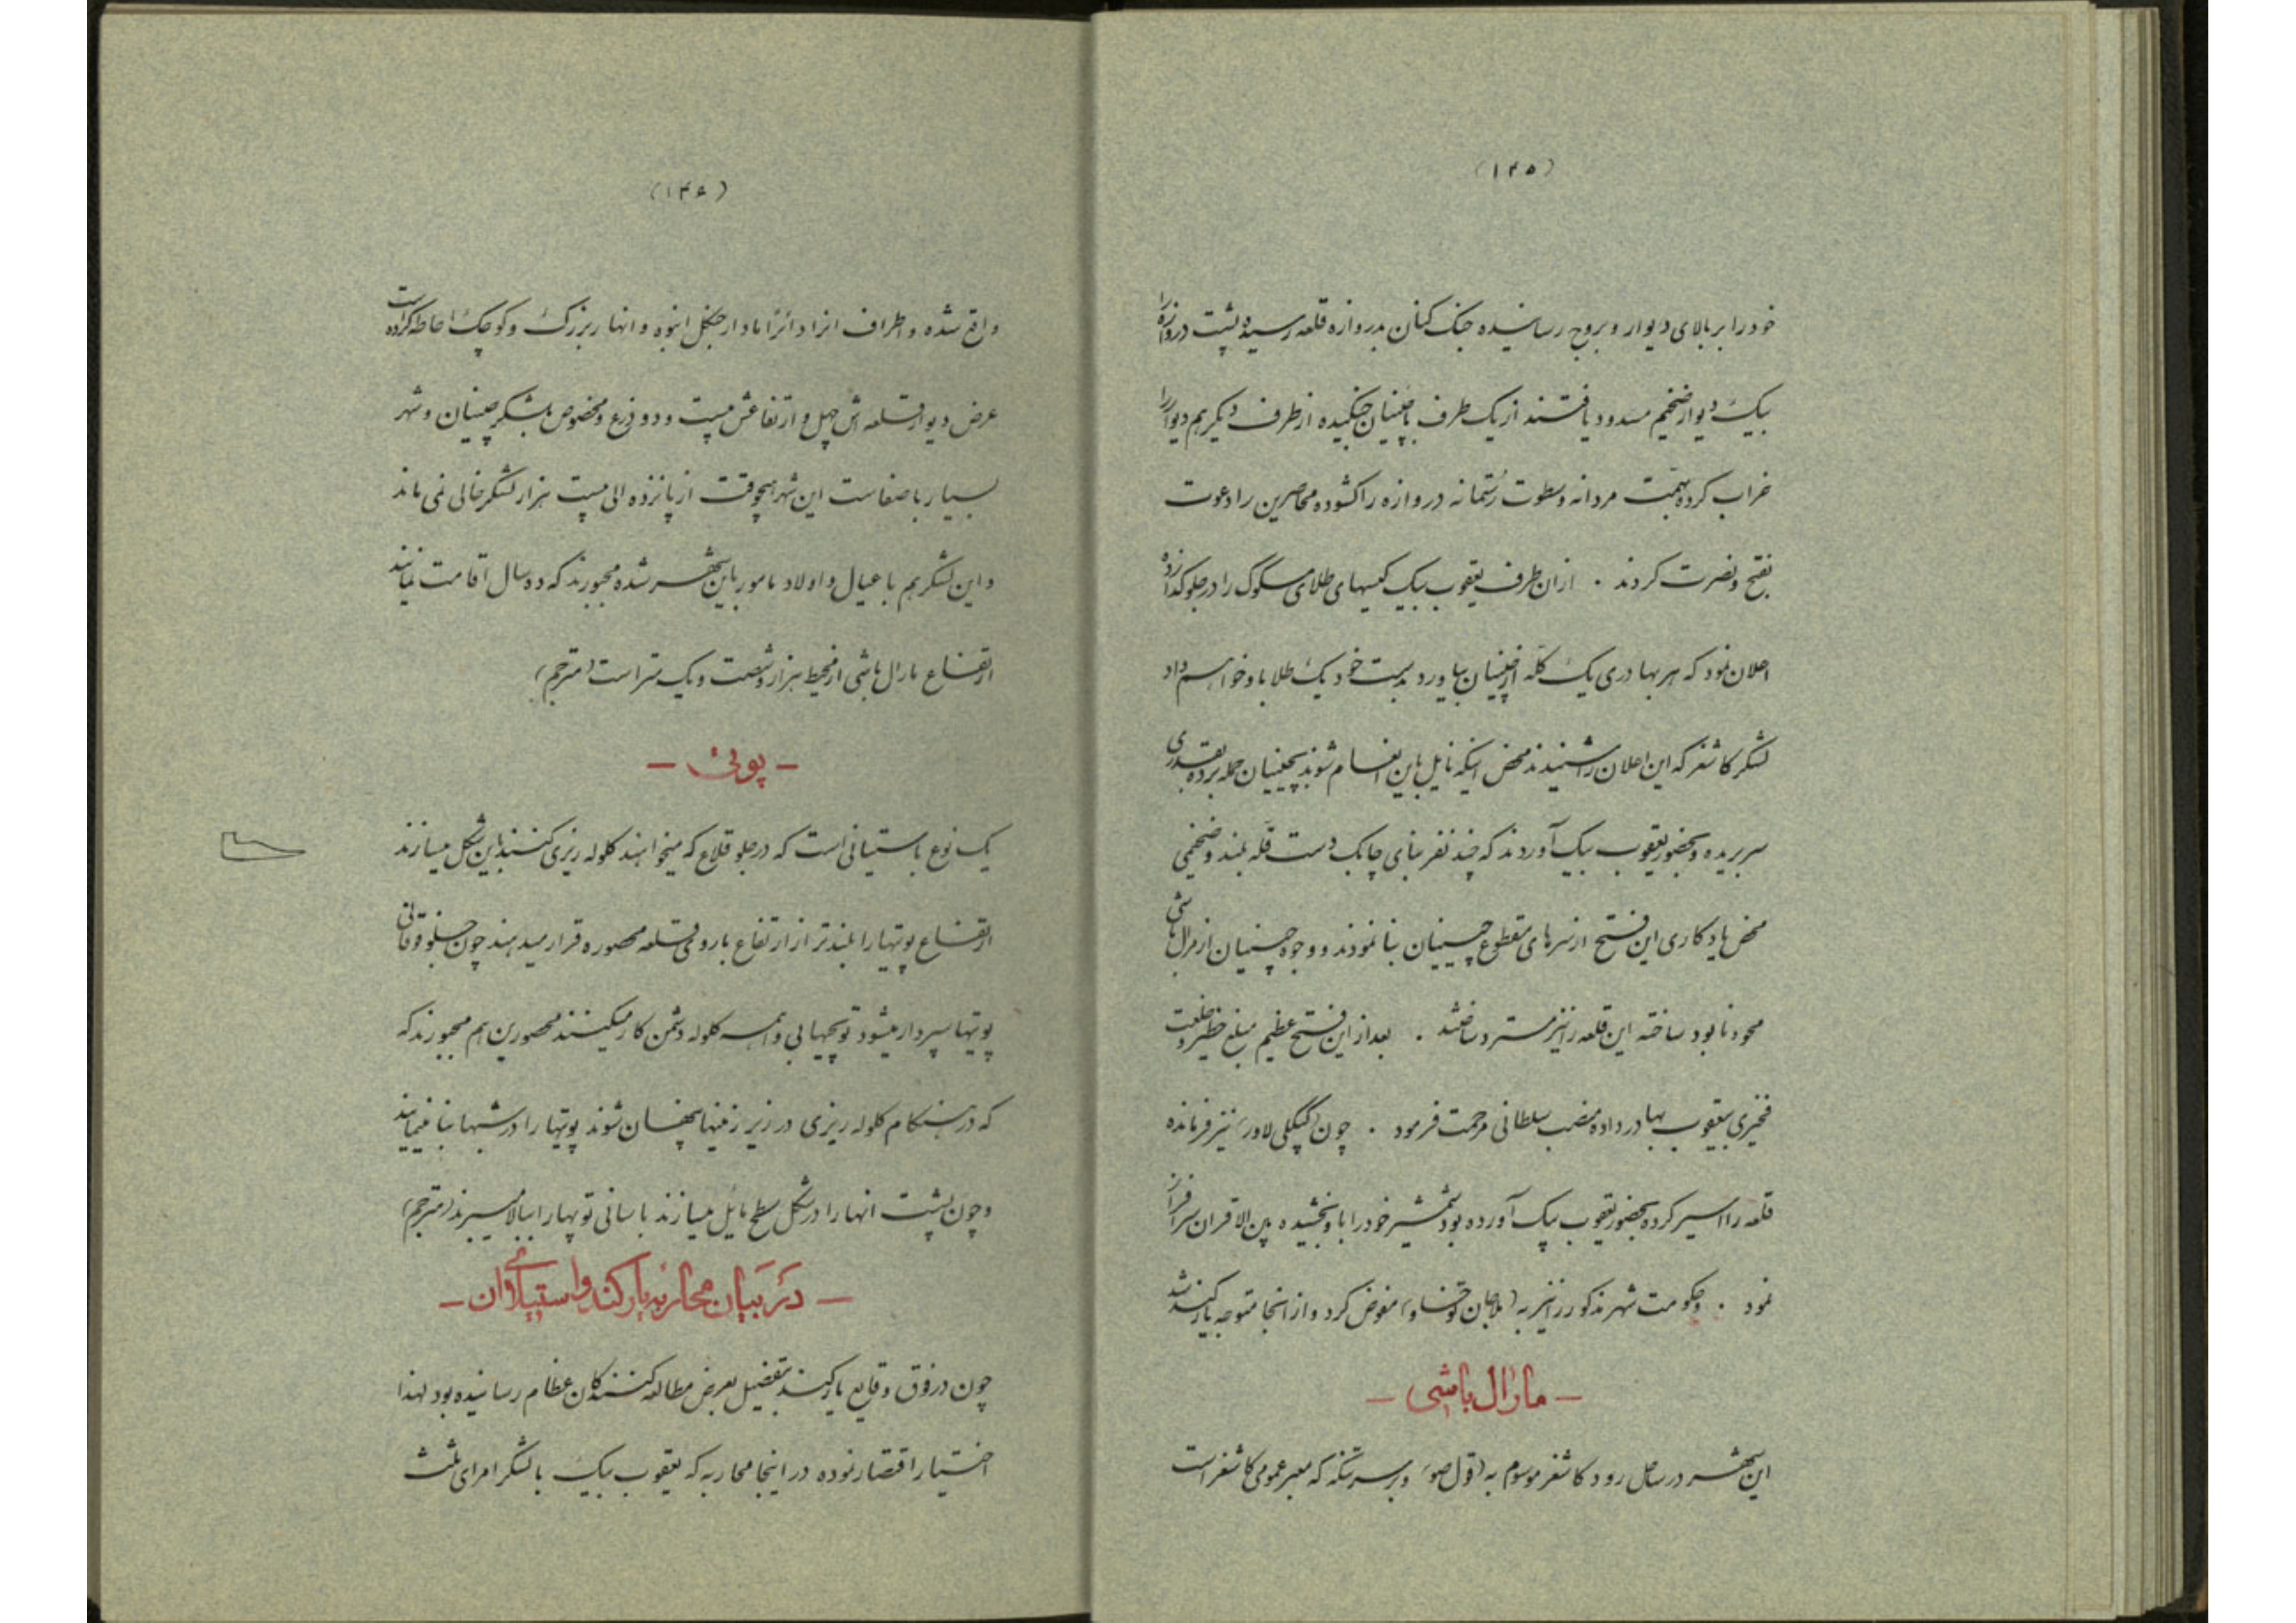 (۱۴۵)
خود را بر بالای دیوار و بروج رسانیده جنک کنان بدروازه قلعه رسیده پشت دروازه را
بیک دیوار ضخیم مسدود یافتند از یک طرف با چینیان جنکیده از طرف دیکر هم دیوار را
خراب کرده بهمّت مردانه وسطوت رُستمانه دروازه را کشوده محاصرین را دعوت
بفتح ونصرت کردند . ازان طرف یعقوب بیک کیسهای طلای مسکوک را در جلو کذارده
اعلان نمود که هر بهادری یک کلّه از چینیان بیاورد بدست خود یک طلا باو خواهم داد
لشکر کاشغر که این اعلان را شنیدند محض اینکه نایل باین انعام شوند بچینیان حمله برده بقدری
سر بریده وبحضور یعقوب بیک آوردند که چند نفر بنای چابک دست قلّه بلند وضخیمی
محض یادکاری این فتح از سرهای مقطوع چینیان بنا نمودند و وجود چینیان از مرال باشی
محو ونابود ساخته این قلعه را نیز مسترد ساختند . بعد از این فتح عظیم مبلغ خطیر وخلعت
فخیری بیعقوب بهادر داده منصب سلطانی مرحمت فرمود . چون (کپکلی لاور) نیز فرمانده
قلعه را اسیر کرده بحضور یعقوب بیک آورده بود شمشیر خود را باو بخشیده بین الاقران سرافراز
نمود . وحکومت شهر مذکور را نیز به (ملاجان توقساو) مفوض کرد و از انجا متوجه یارکند شد
– مارال باشی –
این شهر در ساحل رود کاشغر موسوم به (قزل صو) وبر سر تنکه که معبر عمومی کاشغر است
(۱۴۶)
واقع شده و اطراف انرا دائرًا مادار جنکل انبوه و انهار بزرک وکوچک احاطه کرده است
عرض دیوار قلعه اش چهل و ارتفاعش بیست و دو ذرع ومخصوص بلشکر چینیان وشهر
بسیار باصفاست این شهر هیچوقت از پانزده الی بیست هزار لشکر خالی نمی ماند
و این لشکر هم با عیال و اولاد مامور باین شهر شده مجبورند که ده سال اقامت نمایند
ارتفاع مارال باشی از محیط هزار وشصت و یک متر است (مترجم)
– پوتی –
یک نوع باستیانی است که در جلو قلاع که میخواهند کلوله ریزی کنند باین شکل میسازند
ارتفاع پوتیها را بلندتر از ارتفاع باروی قلعه محصوره قرار میدهند چون جلو فوقانی
پوتیها سپردار میشود توپچیها بی واهمه کلوله دشمن کار میکنند محصورین هم مجبورند که
که در هنکام کلوله ریزی در زیر زمینها پنهان شوند پوتیها را در شبها بنا مینمایند
و چون پشت انها را در شکل سطح مایل میسازند باسانی توپها را ببالا میبرند (مترجم)
– در بیان محاربه یارکند و استیلای ان –
چون در فوق وقایع یارکند بتفضیل بعرض مطالعه کنندکان عظام رسانیده بود لهذا
اختیار اقتصار نموده در اینجا محاربه که یعقوب بیک با لشکر امرای ثلث